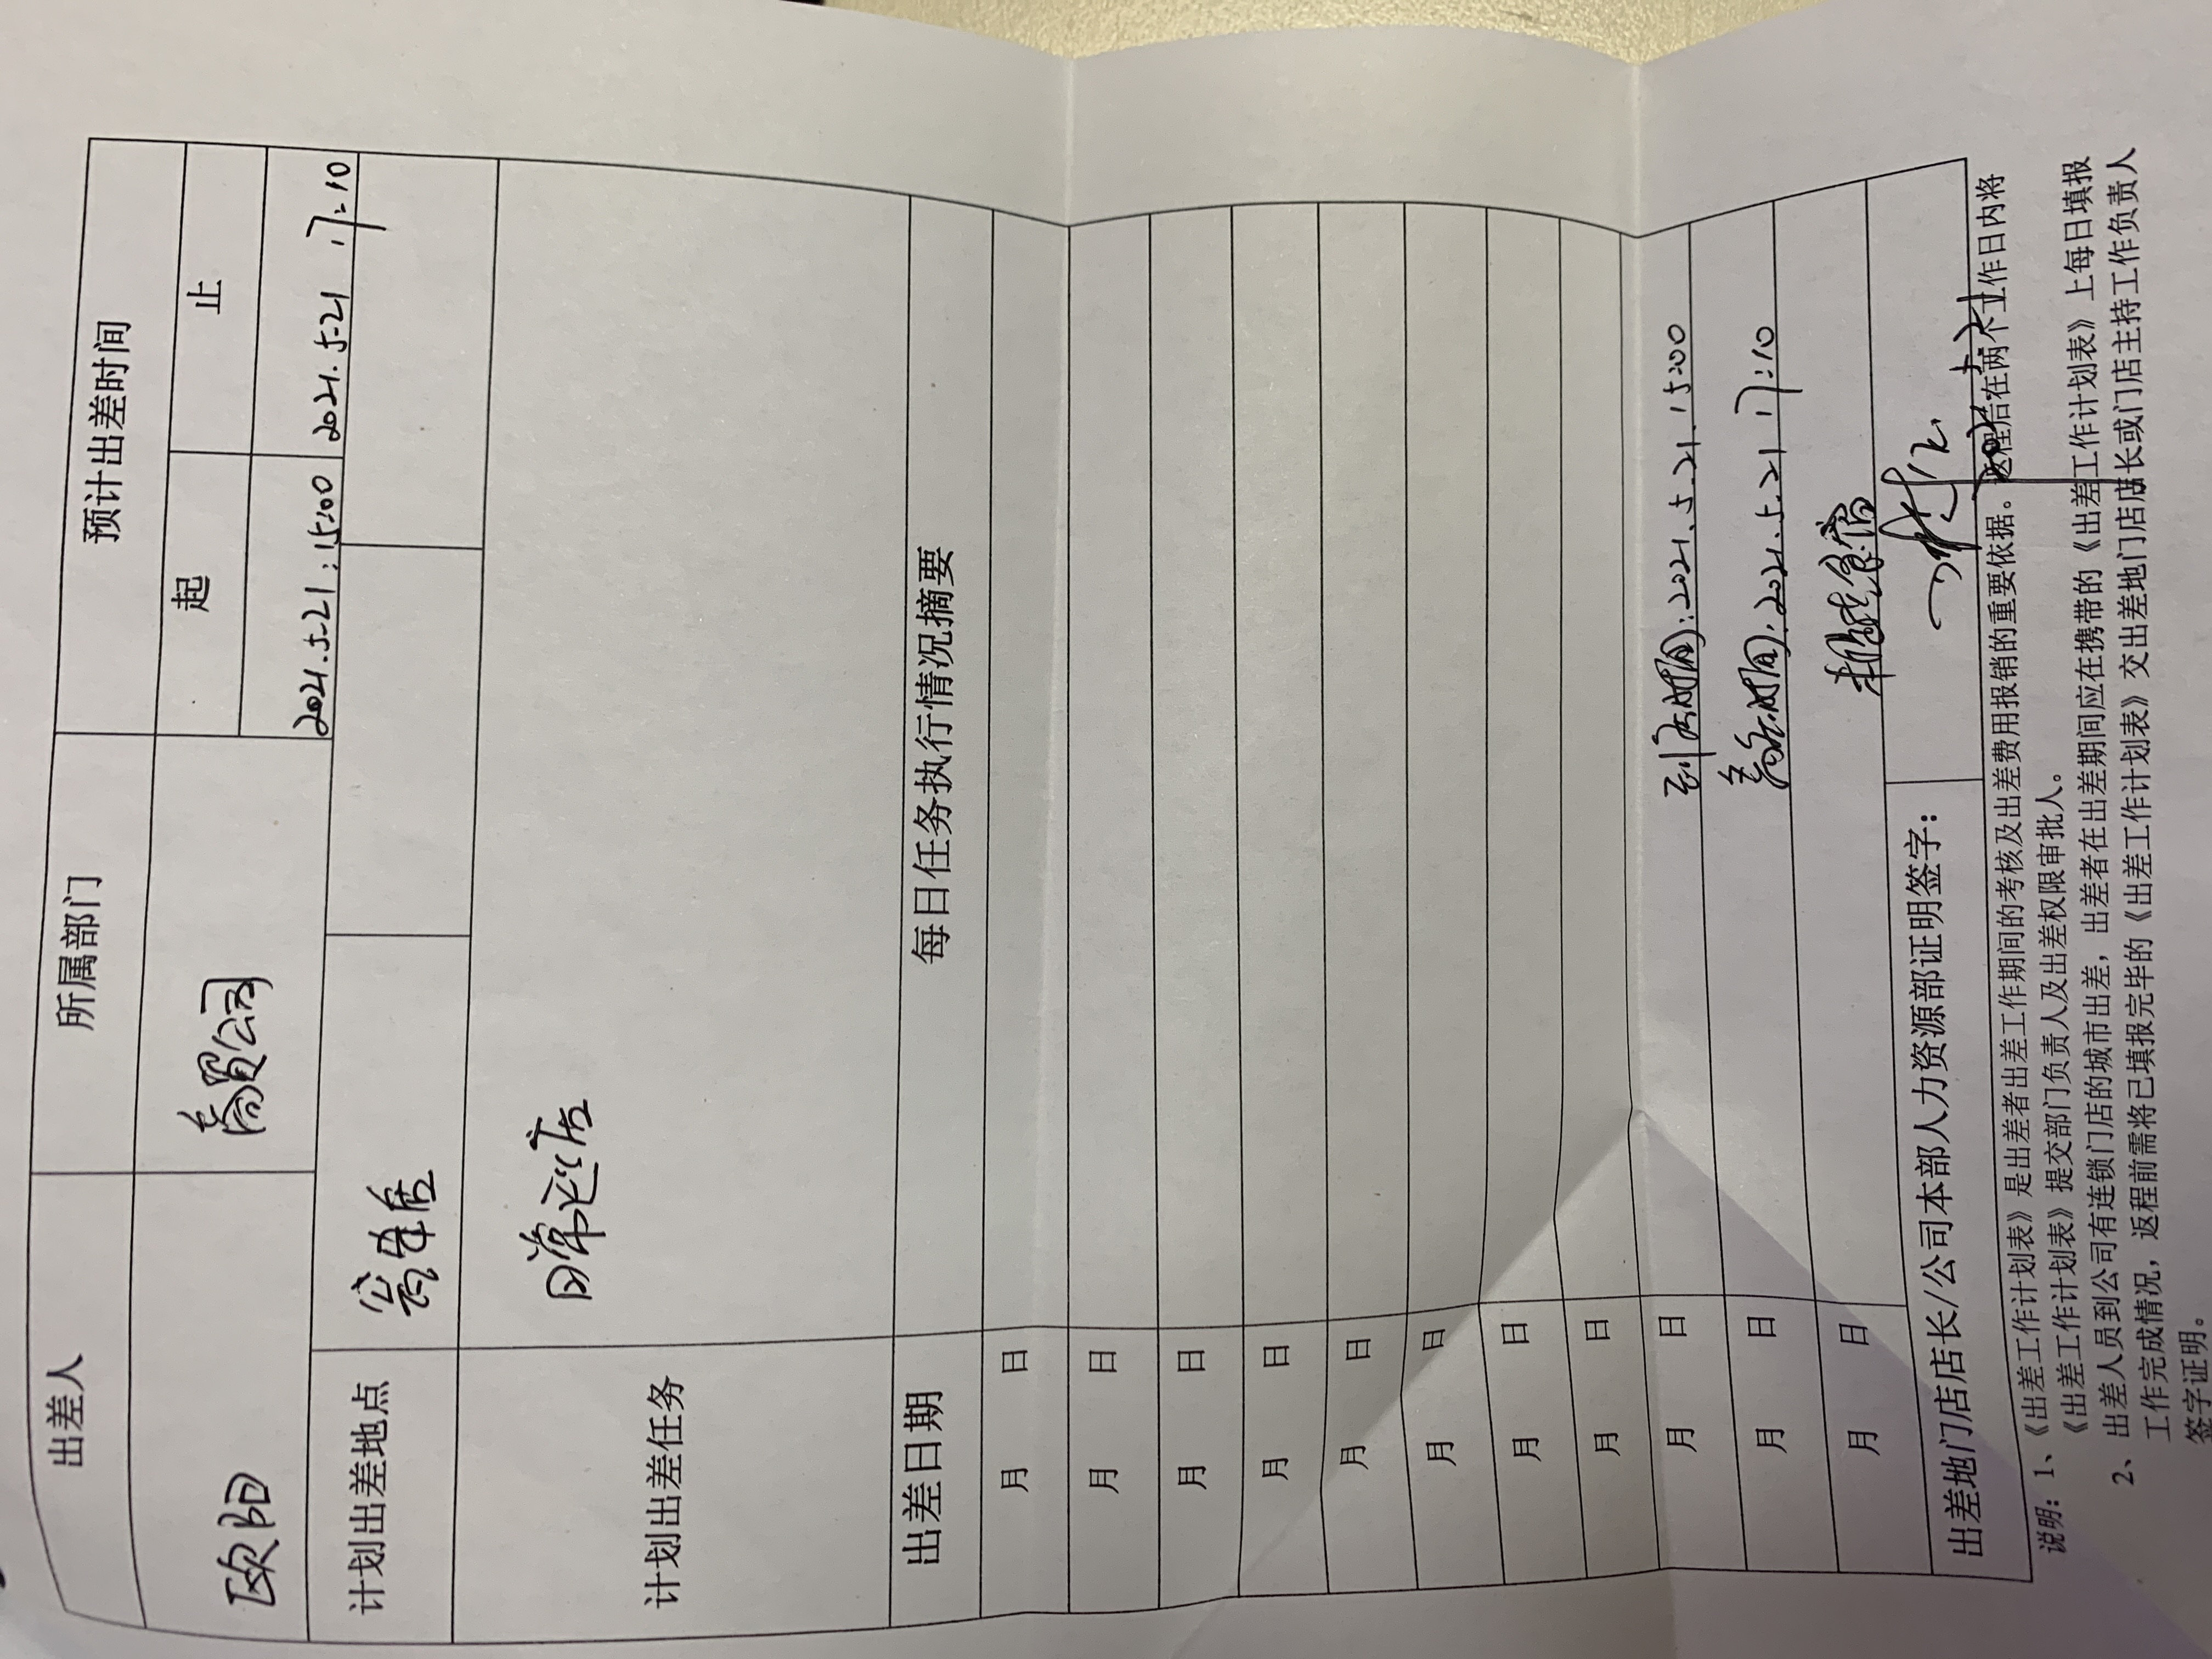 出差人 所属部门 预计出差时间
起 止
欧阳 商贸公司 2021.5.21:15:00 2021.5.21 17:10
计划出差地点
计划出差任务 日常巡店
出差日期 每日任务执行情况摘要
月 日
月 日
月 日
月 日
月 日
月 日
月 日
月 日
月 日 到店时间:2021.5.21.15:00
月 日 离店时间:2021.5.21 17:10
月 日 未提供食宿
出差地门店店长/公司本部人力资源部证明签字:
说明:1、《出差工作计划表》是出差者出差工作期间的考核及出差费用报销的重要依据。返程后在两个工作日内将
《出差工作计划表》提交部门负责人及出差权限审批人。
2、出差人员到公司有连锁门店的城市出差,出差者在出差期间应在携带的《出差工作计划表》上每日填报
工作完成情况,返程前需将已填报完毕的《出差工作计划表》交出差地门店店长或门店主持工作负责人
签字证明。